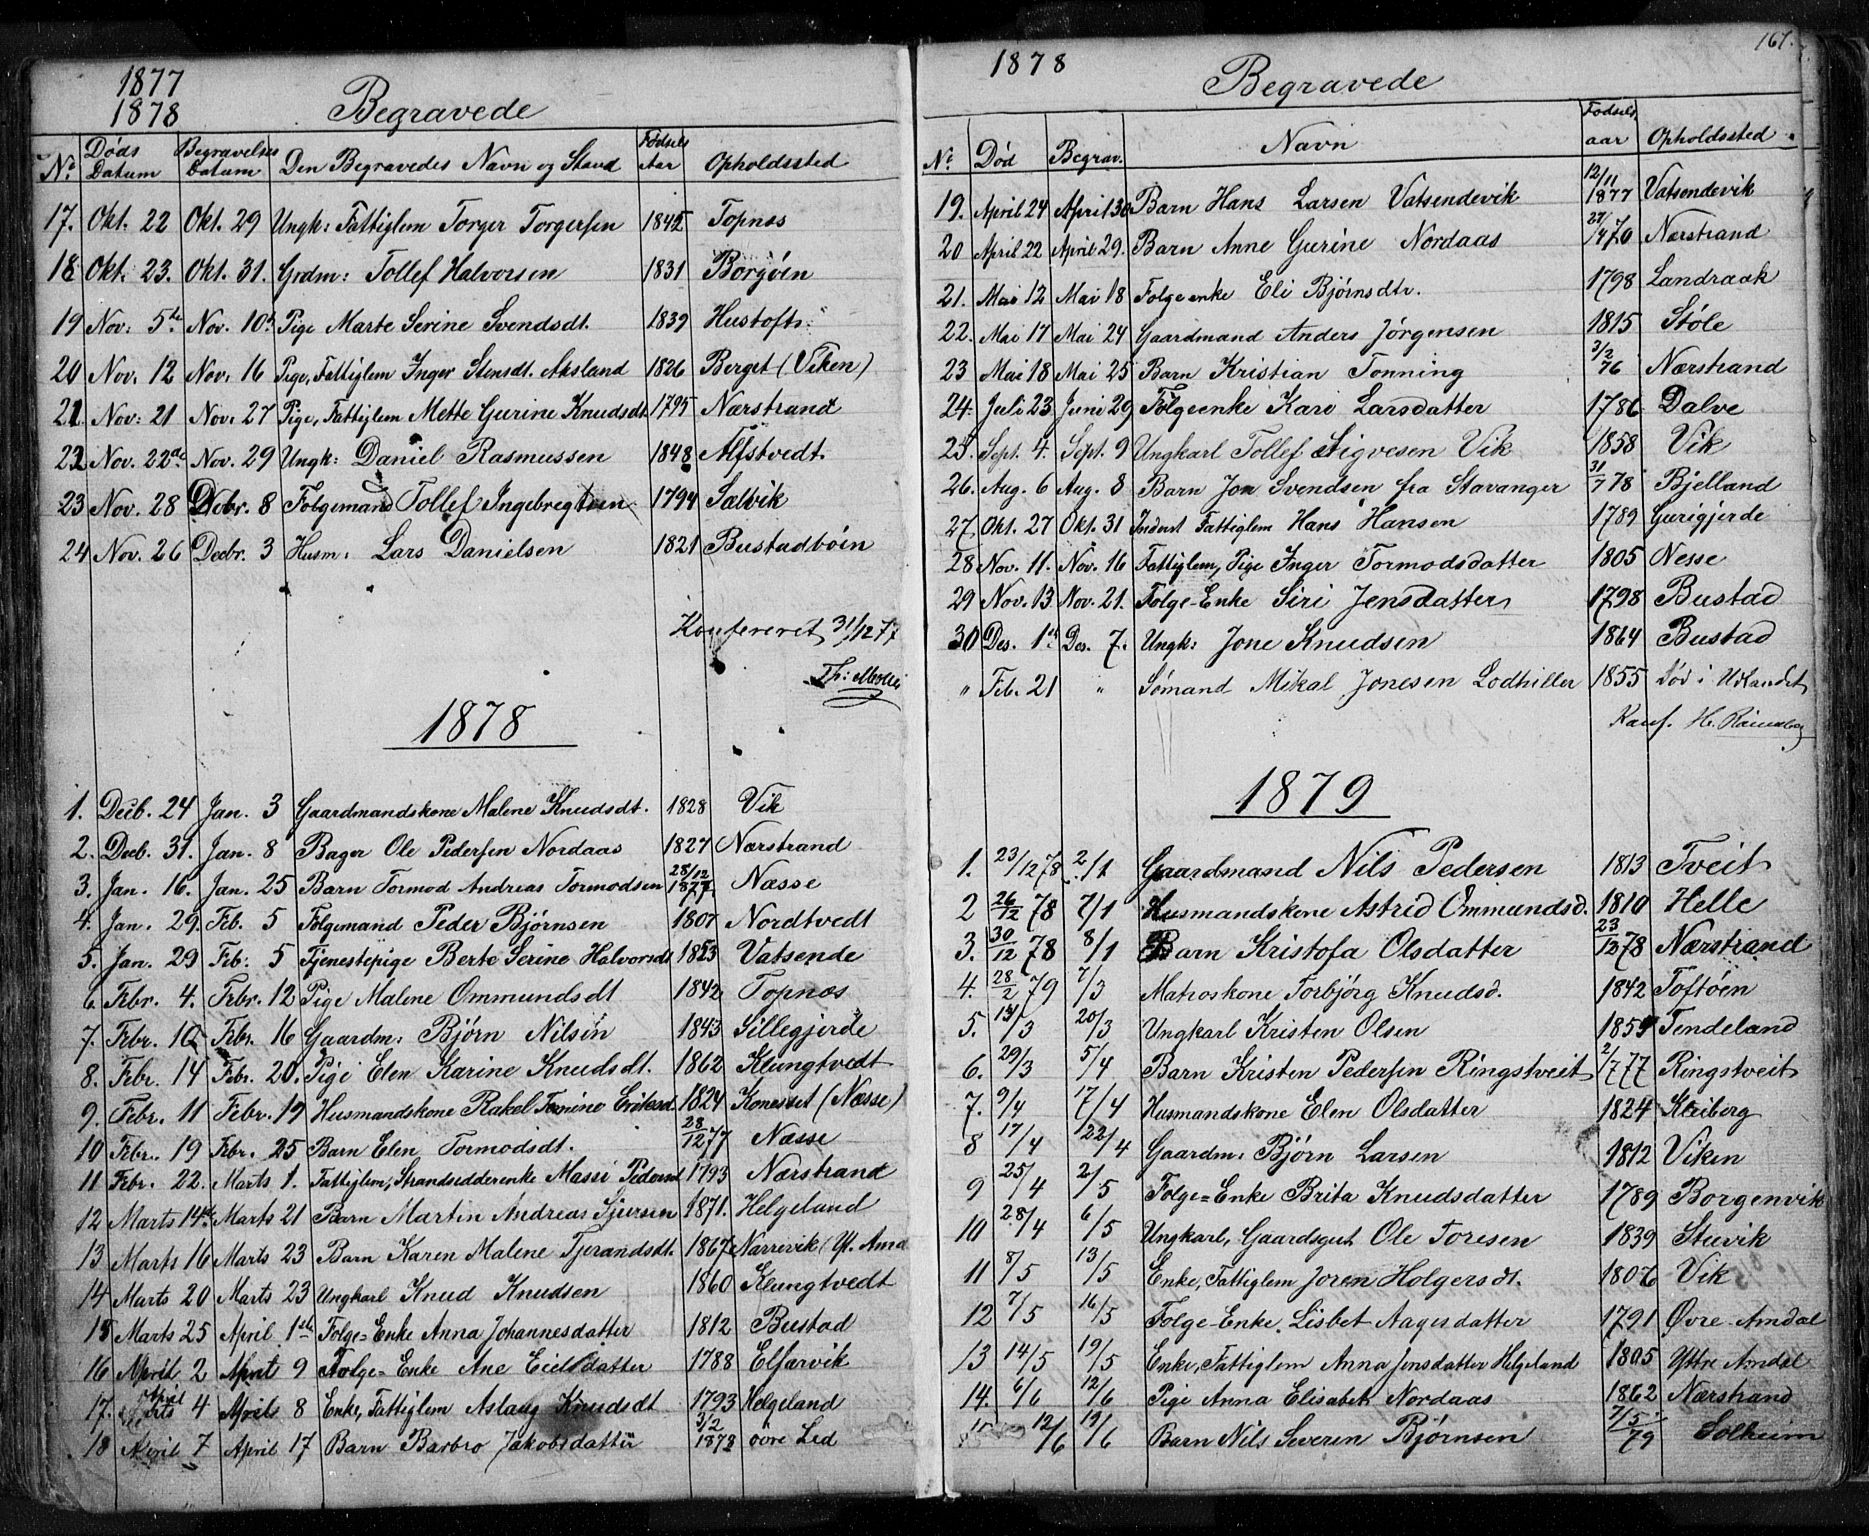 1877
1878
Begravede
No. Døds Datum Begravelses Datum Den Begravedes Navn og Stand Fødsels Aar Opholdssted
17. Okt. 22 Okt. 29 Ungk: Fattiglem Torger Torgersen 1845 Topnæs
18 Okt. 23. Okt. 31. Grdm: Tollef Halvorsen 1831 Borgøen
19 Nov: 5te Nov. 10de Pige Marte Serine Svendsdt. 1839 Hustoft
20 Nov. 12 Nov. 16 Pige, Fattiglem Inger Stensdt. Aksland 1826 Berget (Viken)
21 Nov: 21 Nov. 27 Pige, Fattiglem Mette Gurine Knudsdt 1795 Nærstrand
22 Nov. 22de Nov. 29 Ungk: Daniel Rasmussen 1848 Alfstvedt.
23 Nov. 28 Decbr. 8 Folgemand Tollef Ingebregtsen 1794 Salvik
24 Nov. 26 Decbr. 3 Husm: Lars Danielsen 1821 Bustadbøin
Konfereret 31/12 77
1878
1. Decb. 24 Jan. 3 Gaardmandskone Malene Knudsdt. 1828 Vik
2. Decb. 31. Jan. 8 Bager Ole Pedersen Nordaas 1827 Nærstrand
3. Jan. 16. Jan. 25 Barn Tormod Andreas Tormodsen 28/12 1877 Næsse
4. Jan. 29. Feb. 5 Folgemand Peder Bjørnsen 1807 Nordtvedt
5. Jan. 29 Feb: 5 Tjenestepige Berte Serine Halvorsdt 1853 Vatsende
6. Febr. 4. Febr. 12 Pige Malene Ommundsdt 1842 Topnæs
7. Febr. 10 Febr. 16 Gaardm: Bjørn Nilsen 1843 Gillegjerde
8. Febr. 14 Febr. 20. Pige Elen Karine Knudsdt. 1862 Klungtvedt
9. Febr. 11 Febr. 19 Husmandskone Rakel Eriksd 1824 (Næsse)
10 Febr. 19 Febr. 25 Barn Elen Tormodsdt. 28/12 77 Næsse
11 Febr. 22. Marts 1. Fattiglem, Strandsidderenke Massi Pedersd 1793 Nærstrand
12 Marts 14de Marts 21 Barn Martin Andreas Sjursen 1871. Helgeland
13 Marts 16 Marts 23 Barn Karen Malene Tjerandsdt. 1867 Narrevik (Yt. Amd
14 Marts 20 Marts 23 Ungkarl Knud Knudsen 1860 Klungtvedt
15 Marts 25 April 1ste Folge=Enke Anna Johannesdatter 1812 Bustad
16 April 2 April 9 Folge=Enke Ane Eielsdatter 1788 Elfarvik
17. April 4 April 8 Enke, Fattiglem Aslaug Knudsdt 1793 Helgeland
18 April 7 April 17 Barn Barbro Jakobsdatter 3/2 1878 øvre Led
1878
167.
Begravede
No. Død Begrav. Navn Fødsels aar Opholdssted.
19. April 24 April 30 Barn Hans Larsen Vatsendevik 12/11 1877 Vatsendevik
20 April 22 April 29. Barn Anne Gurine Nordaas Nærstrand
21. Mai 12 Mai 18 Folgeenke Eli Bjørnsdtr. 1798 Landraak
22. Mai 17 Mai 24 Gaardmand Anders Jørgensen 1815 Støle
23 Mai 18 Mai 25 Barn Kristian Tonning 3/2 76 Nærstrand
24. Juli 23 Juni 29 Folgeenke Kari Larsdatter 1786 Dalve
25. Sept. 4. Sept. 9 Ungkarl Tollef Sigvesen Vik 1858 Vik
26. Aug. 6 Aug. 8 Barn Jon Svendsen fra Stavanger 31/7 78 Bjelland
27, Okt. 27 Okt. 31 Inderst Fattiglem Hans Hansen 1789 Gurigjerde
28 Nov. 11. Nov. 16 Fattiglem, Pige Inger Tormodsdatter 1805 Nesse
29 Nov. 13 Nov. 21. Folge-Enke Siri Jensdatter 1798 Bustad
30 Des. 1ste Des. 7. Ungk: Jone Knudsen 1864 Bustad
" Feb. 21 " Sømand Mikal Jonesen Lodhiller 1855 død i Udlandet
Konf. H.
1879
1. 23/12 78 2/1 Gaardmand Nils Pedersen 1813 Tveit
2 26/12 78 7/1 Husmandskone Astrid Ommundsd. 1810 Helle
3. 30/12 78 8/1 Barn Kristofa Olsdatter 23/12 78 Nærstrand
4. 28/2 79 7/3 Matroskone Torbjørg Knudsd. 1842 Toftøen
5. 13/3 20/3 Ungkarl Kristen Olsen 1859 Tendeland
6. 29/3 5/4 Barn Kristen Pedersen Ringstveit 2/7 77 Ringstveit
7. 9/4 17/4 Husmandskone Elen Olsdatter 1824 Kleiberg
8 17/4 22/4 Gaardm. Bjørn Larsen 1812 Viken
9 25/4 2/5 Folge=Enke Brita Knudsdatter 1789 Borgenvik
10 28/4 6/5 Ungkarl, Gaardsgut Ole Toresen 1839 Stuvik
11 8/5 13/5 Enke, Fattiglem Joren Holgersdt. 1807 Vik
12 7/5 16/5 Folge-Enke Lisbet Aagesdatter 1791 Øvre Amdal
13 14/5 19/5 Enke, Fattiglem Anna Jensdatter Helgeland 1805 Yttre Amdal
14. 6/6 12/6 Pige Anna Elisabet Nordaas 1862 Nærstrand
15 12/6 19/6 Barn Nils Severin Bjørnsen 7/5 79 Solheim